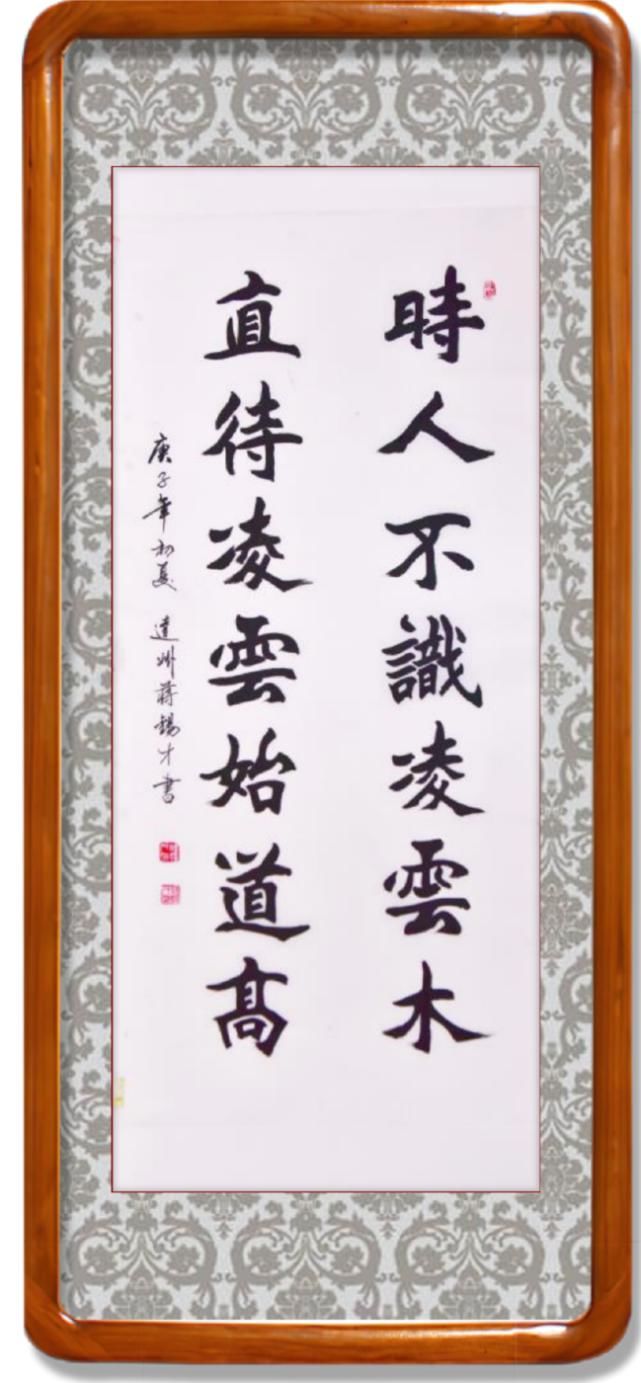 時人不識凌雲木
直待凌雲始道高
庚子年初夏 達州蔣錫才書